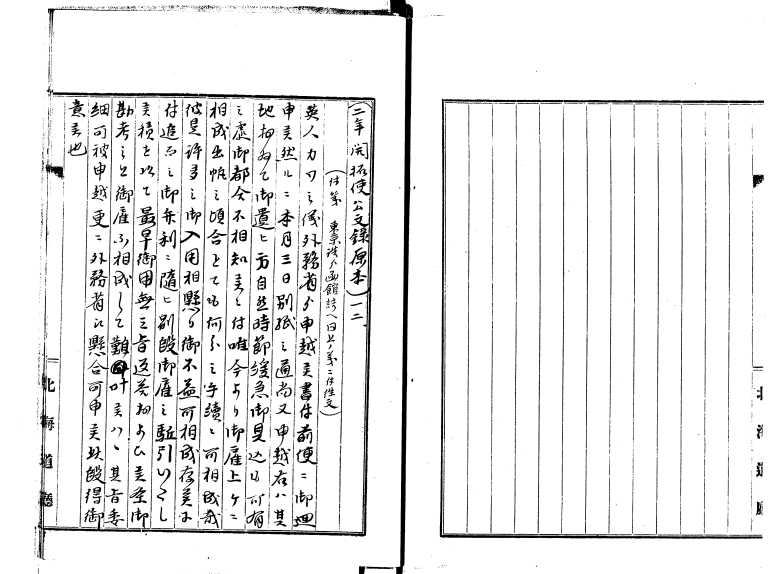 (二年開拓使公文録原本)一二
(件第 東京詰ゟ函館詰ヘ同七ノ義ニ付往文)
英人カワ之儀外務省ゟ申越候書付前便ニ御廻
申候然ルニ本月三日別紙之通尚又申越右ハ其
地ニ於て御遣ヒ方自然時節緩急御見込も可有
之処御都合不相知候ニ付唯今より御雇上ケニ
相成出帳之頃合とても何分之手続ニ可相成哉
彼是許多之御入用相懸り御不益可相成存候ゟ
付進而之御弁利ニ随ヒ別段御雇之駈引いたし
候積を以て最早御用無之旨返答およひ候条御
勘考之上御雇ニ相成して難叶候ハヽ其旨委
細可被申越更ニ外務省江懸合可申候此段得御
意候也
北海道廳
北海道廳